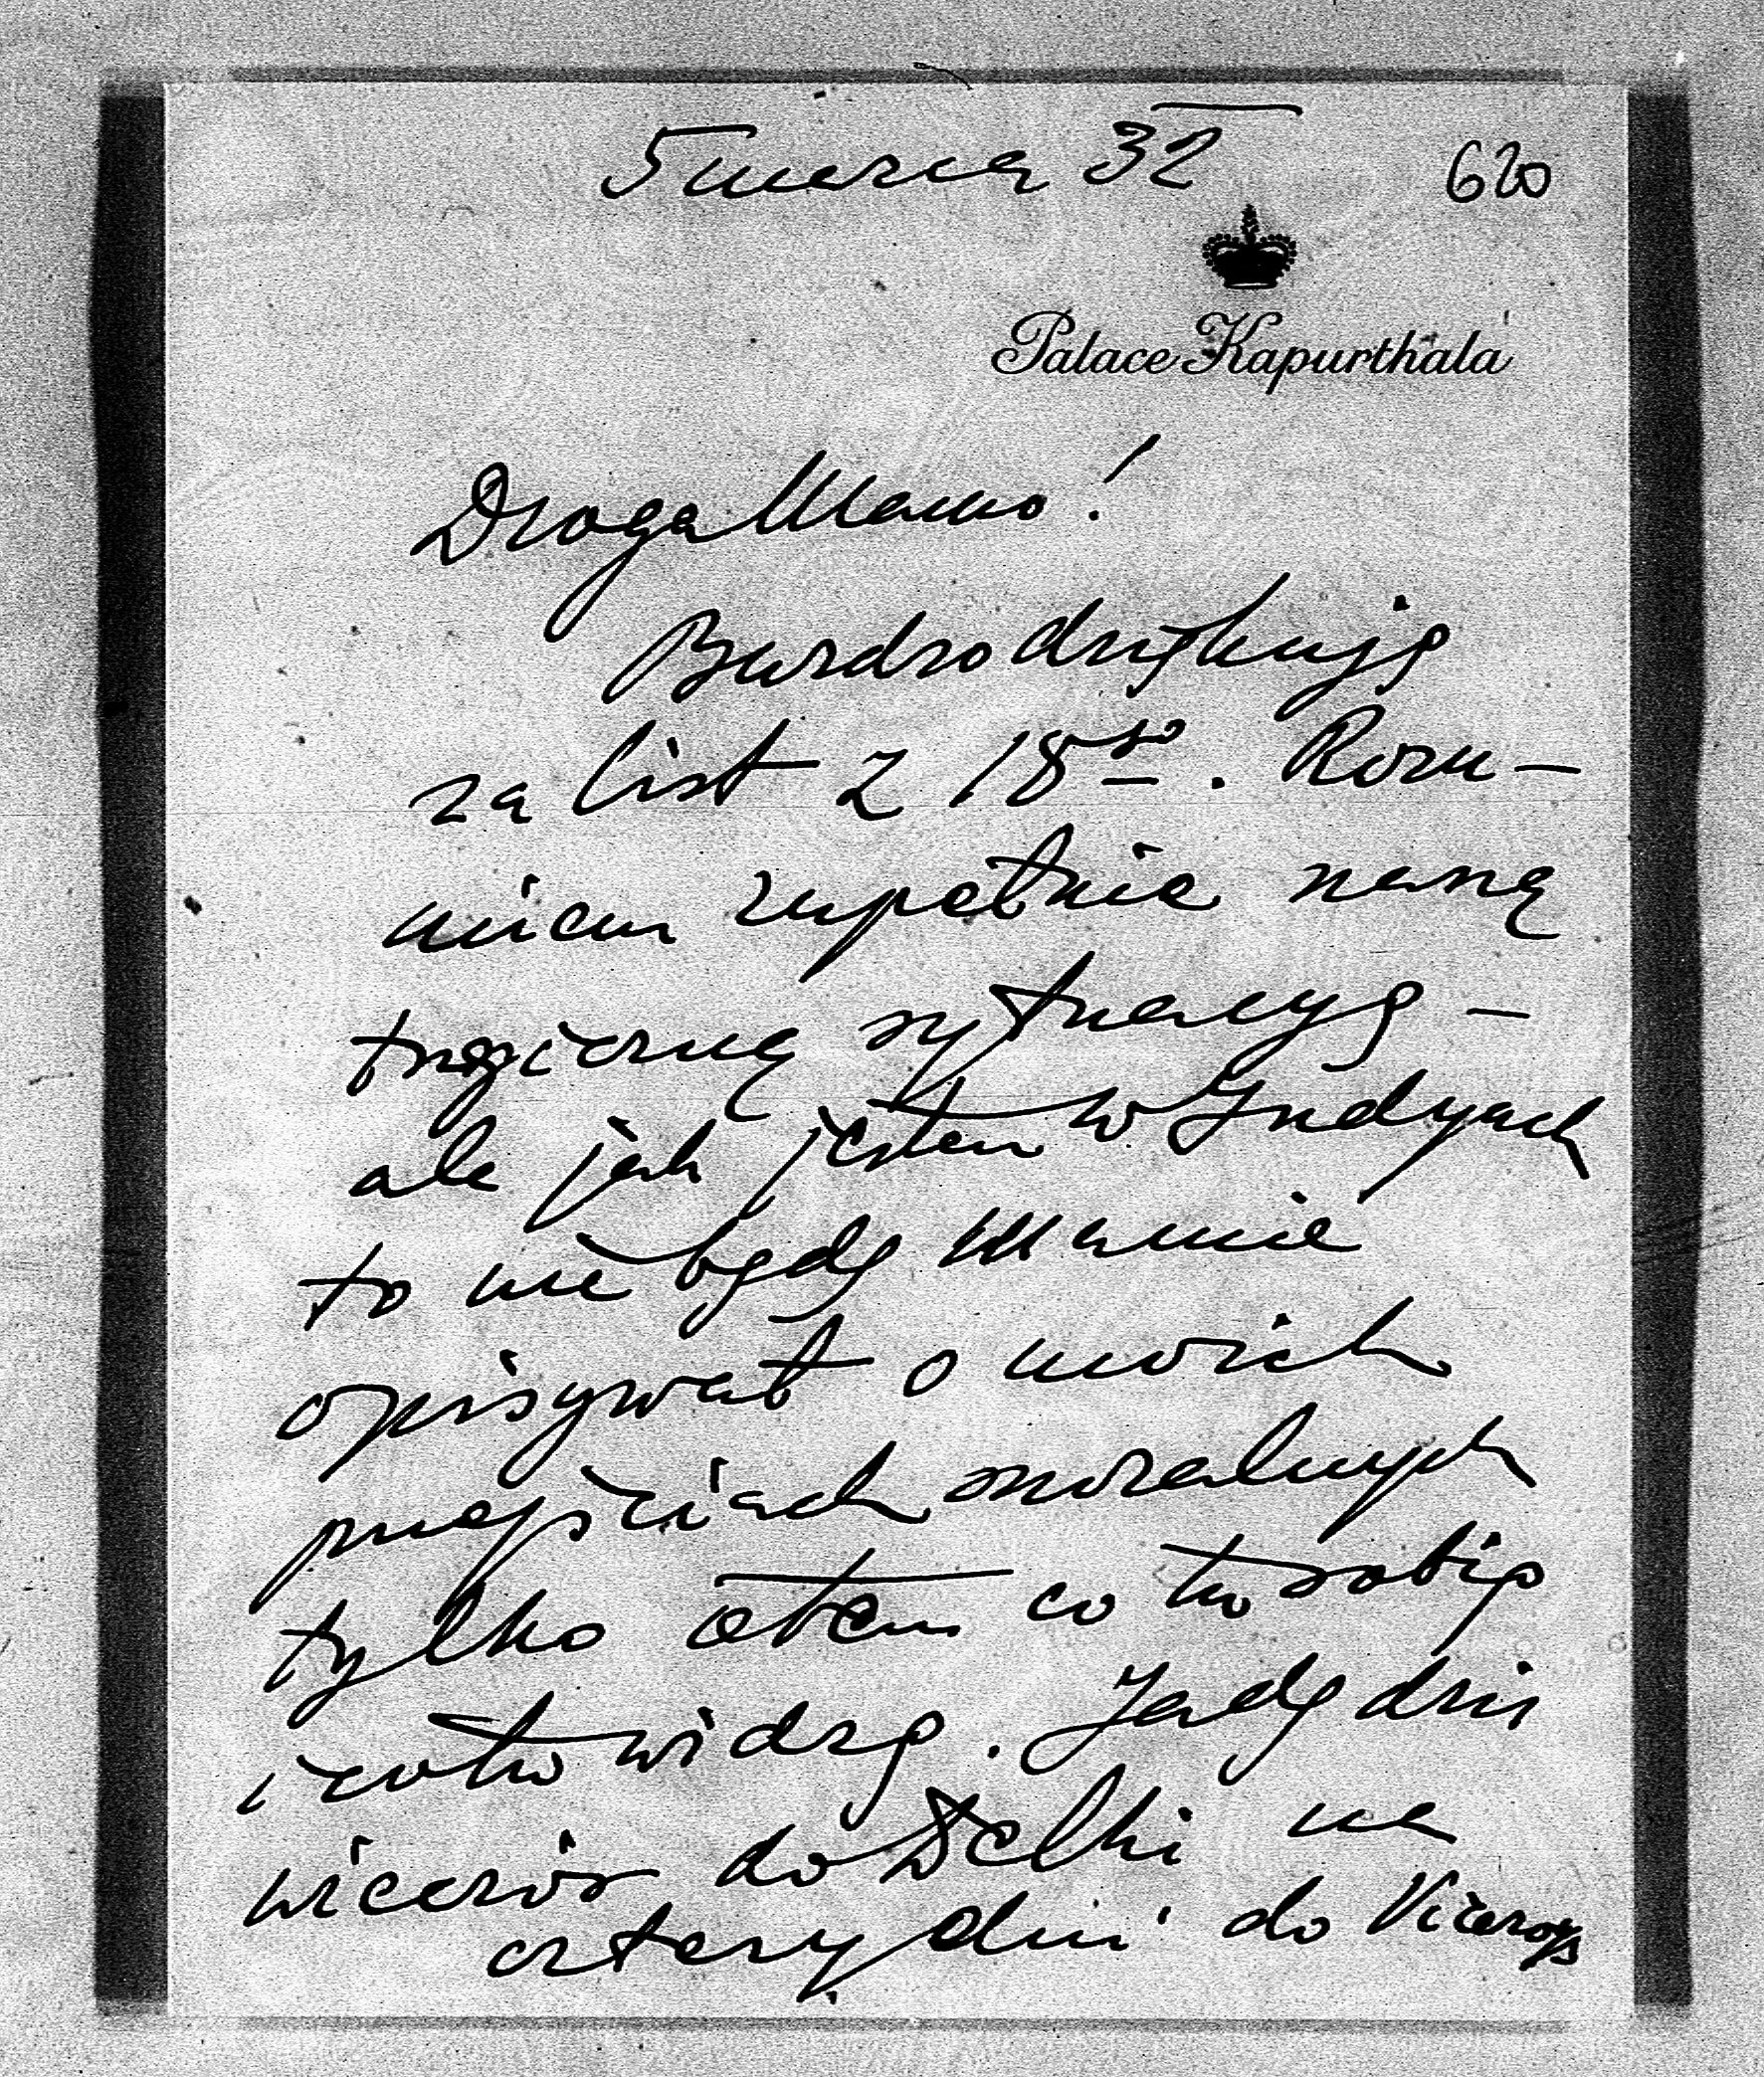 5 marca 32
620
Palace Kapurthala
Droga Mamo!
Bardzo dziękuję
za list z 18go. Rozu-
miem zupełnie naszą
tragiczną sytuacyę -
ale jak jestem w Indyach
to nie będę Mamie
opisywał o moich
przejściach moralnych
tylko o tem co tu robię
i co tu widzę. Jadę dziś
wieczór do Delhi na
cztery dni do Viceroys